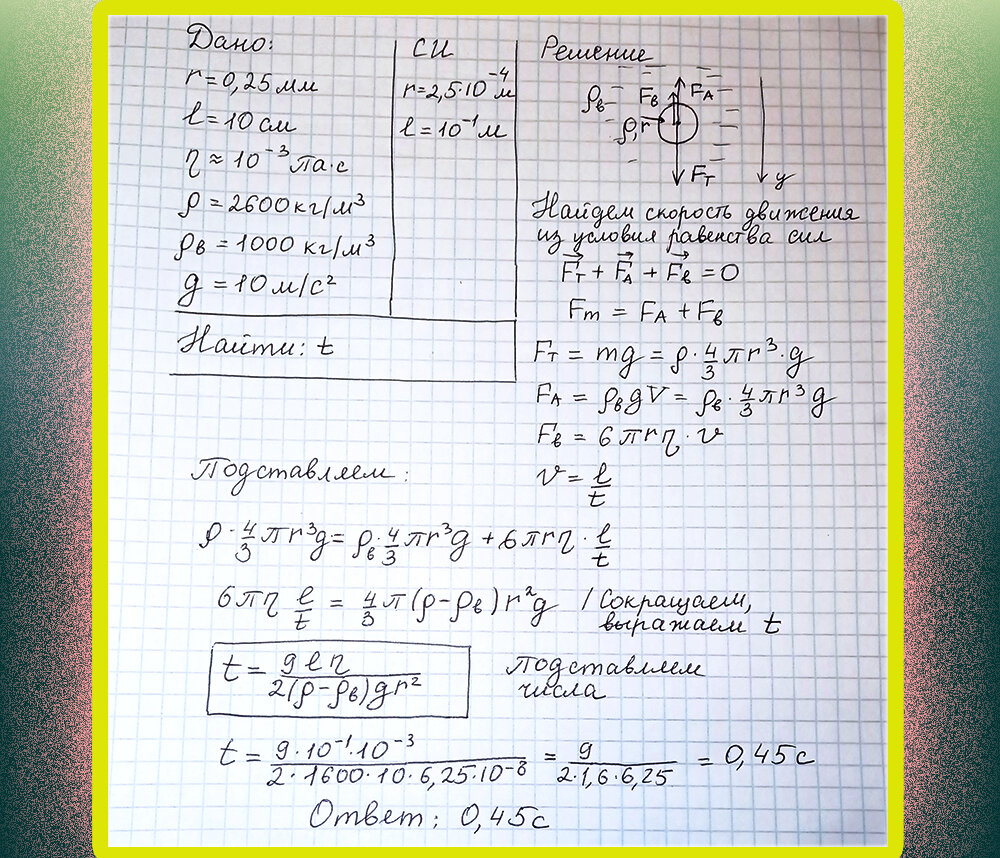 Дано:
r = 0,25 мм
l = 10 см
η ≈ 10⁻³ Па·с
ρ = 2600 кг/м³
ρв = 1000 кг/м³
g = 10 м/с²
Найти: t
СИ
r = 2,5·10⁻⁴ м
l = 10⁻¹ м
Решение
ρв Fв FA
ρ, r
FT
y
Найдем скорость движения
из условия равенства сил
F⃗T + F⃗A + F⃗в = 0
Fт = FA + Fв
FT = mg = ρ · 4/3 πr³ · g
FA = ρв gV = ρв · 4/3 πr³ g
Fв = 6πrη · v
v = l/t
Подставляем:
ρ · 4/3 πr³g = ρв · 4/3 πr³g + 6πrη · l/t
6πη l/t = 4/3 π(ρ-ρв)r²g / Сокращаем,
выражаем t
t = 9lη / 2(ρ-ρв)gr²
Подставляем
числа
t = 9·10⁻¹·10⁻³ / 2·1600·10·6,25·10⁻⁸ = 9 / 2·1,6·6,25 = 0,45 с
Ответ: 0,45 с